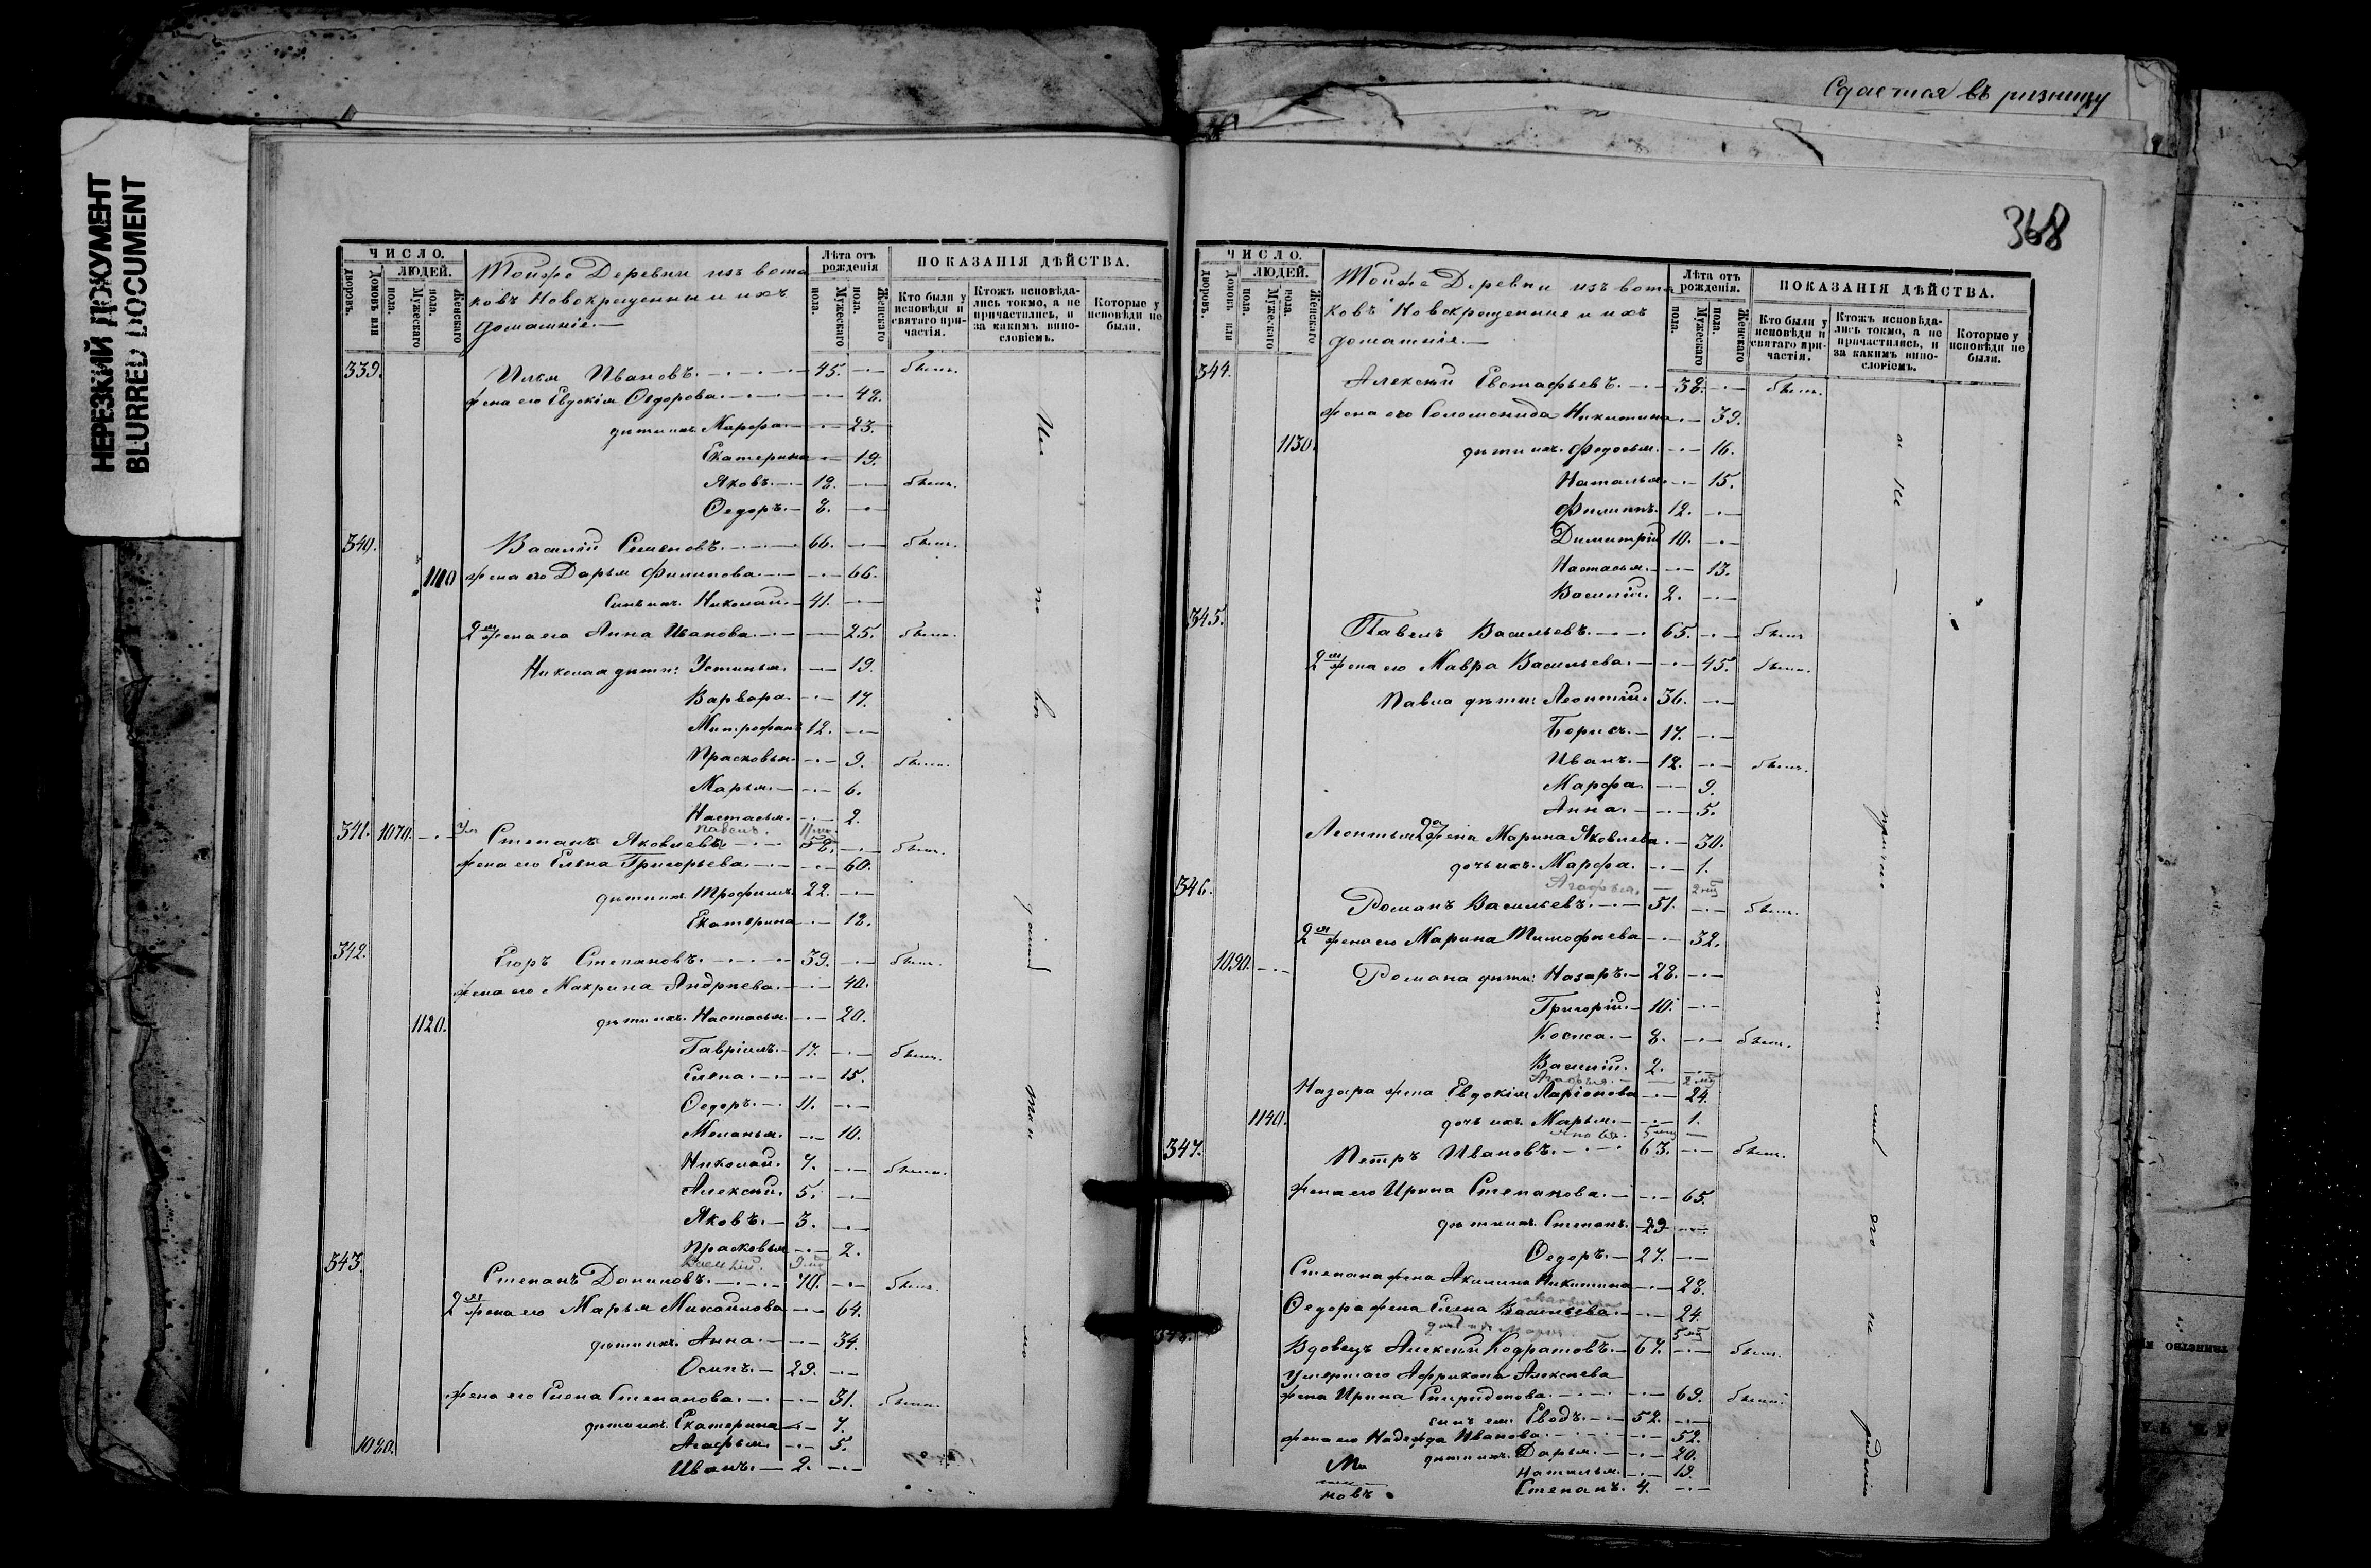 НЕРЕЗКИЙ ДОКУМЕНТ
BLURRED DOCUMENT
Сдается въ ризницу
368
ЧИСЛО.
ЛЮДЕЙ.
Домовъ или дворовъ.
Мужескаго пола.
Женскаго пола.
Тойже Деревни изъ вотя
ковъ Новокрещенныи ихъ
домашніе.—
Лѣта отъ рожденія
Мужескаго пола.
Женскаго пола.
ПОКАЗАНІЯ ДѢЙСТВА.
Кто были у исповѣди и святаго причастія.
Ктожъ исповѣда-
лись токмо, а не
причастились, и
за какимъ вино-
словіемъ.
Которые у исповѣди не были.
339. Илья Ивановъ. 45. былъ.
жена его Евдокія Ѳедорова. 48.
дѣти ихъ Марфа. 23.
Екатерина 19.
Яковъ. 12. былъ.
Ѳедоръ. 8.
340. Василій Семеновъ. 66. былъ.
1110 жена его Дарья Филипова. 66.
Сынъ ихъ Николай. 41.
2я жена его Анна Иванова. 25. была.
Николая дѣти: Устинья. 19.
Варвара. 17.
Митрофанъ 12.
Прасковья. 9. была.
Марья. 6.
Настасья. 2.
Павелъ.
341. 1070. Степанъ Яковлевъ 58. былъ.
жена его Елена Григорьева. 60.
дѣти ихъ Трофимъ. 22.
Екатерина 12.
342. Егоръ Степановъ. 39. былъ.
жена его Макрина Андреева. 40.
1120. дѣти ихъ Настасья. 20.
Гавріилъ. 17. былъ.
Елена. 15.
Ѳедоръ. 11.
Меланья. 10.
Николай. 7. были.
Алексѣй. 5.
Яковъ. 3.
Прасковья 2.
Василій.
343. Степанъ Даниловъ. 70. былъ.
2я жена его Марья Михайлова 64.
дѣти ихъ Анна. 34.
Осипъ. 29.
жена его Елена Степанова. 31. была.
дѣти ихъ Екатерина 7.
Агафья. 5.
1080. Иванъ. 2.
ЧИСЛО.
ЛЮДЕЙ.
Домовъ или дворовъ.
Мужескаго пола.
Женскаго пола.
Тойже Деревни изъ вотя
ковъ Новокрещенные и ихъ
домашніе.—
Лѣта отъ рожденія.
Мужескаго пола.
Женскаго пола.
ПОКАЗАНІЯ ДѢЙСТВА.
Кто были у исповѣди и святаго причастія.
Ктожъ исповѣда-
лись токмо, а не
причастились, и
за какимъ вино-
словіемъ.
Которые у исповѣди не были.
344. Алексѣй Евстафьевъ. 38. былъ.
жена его Соломонида Никитина 39.
1130. дѣти ихъ Федосья. 16.
Наталья. 15.
Филипъ. 12.
Димитрій 10.
Настасья. 13.
Василій. 2.
345. Павелъ Васильевъ. 65. былъ
2я жена его Мавра Васильева. 45. была.
Павла дѣти: Леонтій. 36.
Борисъ. 17.
Иванъ. 12. былъ.
Марфа. 9.
Анна. 5.
Леонтья 2я жена Марина Яковлева 30.
дочь ихъ Марфа. 1.
Агафья.
346. Романъ Васильевъ. 51. былъ.
2я жена его Марина Тимофеева 32.
1090. Романа дѣти: Назаръ. 28.
Григорій. 10.
Косма. 8. былъ.
Василій. 2.
Назара жена Евдокія Ларіонова 24.
1140. дочь ихъ Марья. 1.
347. Петръ Ивановъ. 63. былъ.
жена его Ирина Степанова. 65.
дѣти ихъ Степанъ. 29
Ѳедоръ. 27.
Степана жена Акилина Никитина 28.
Ѳедора жена Елена Васильева. 24.
348. Вдовецъ Алексѣй Кодратовъ. 67. былъ.
умершаго Африкана Алексѣева
жена Ирина Спиридонова. 69. была.
сынъ ея Еводъ. 52.
жена его Надежда Иванова. 52.
дѣти ихъ Дарья. 20.
Наталья. 19.
Степанъ. 4.